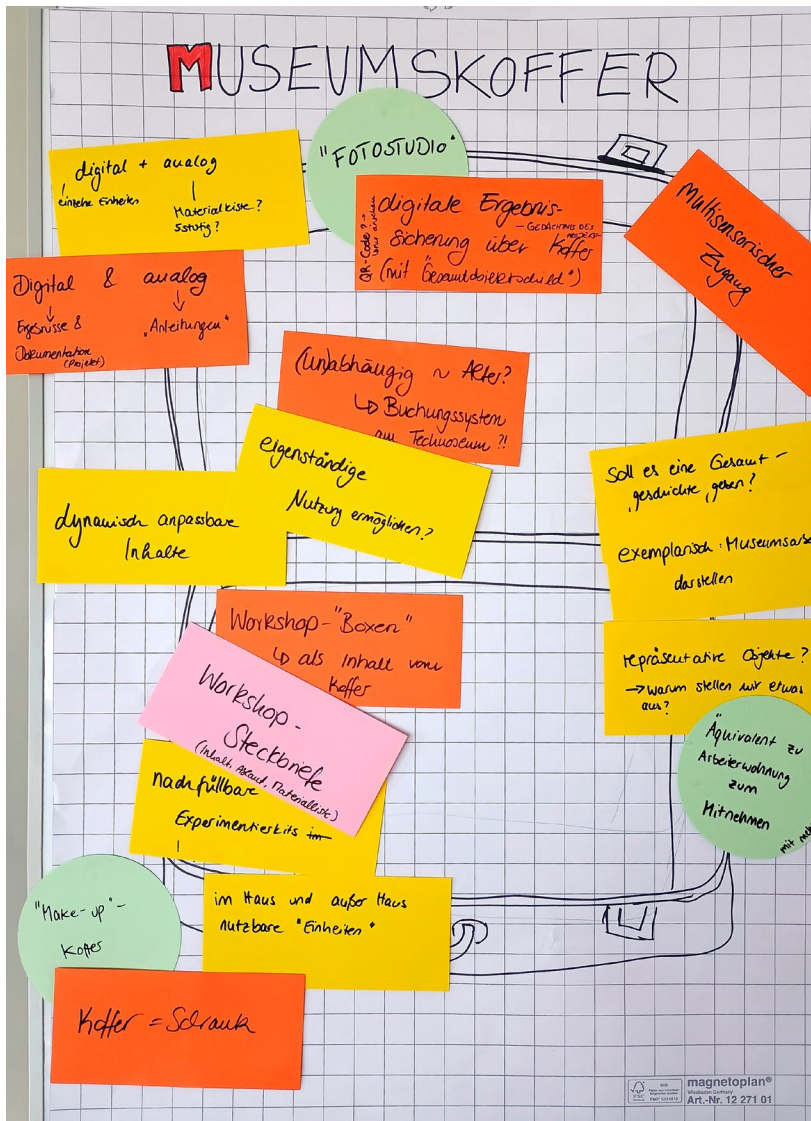 MUSEUMSKOFFER
digital + analog
einzelne Einheiten
Materialkiste?
5stufig?
"FOTOSTUDIO"
QR-Code? →
digitale Ergebnis-
sicherung über Koffer
— GEDÄCHTNIS DES
(mit "Gesamtobjektschild")
Multisensorischer
Zugang
Digital & analog
Ergebnisse &
Dokumentation
(Projekt)
"Anleitungen"
(un)abhängig ~ Alter?
↳ Buchungssystem
am Technoseum?!
eigenständige
Nutzung ermöglichen?
dynamisch anpassbare
Inhalte
Soll es eine Gesamt-
geschichte geben?
exemplarisch: Museumsarbe
darstellen
Workshop-"Boxen"
↳ als Inhalt vom
Koffer
repräsentative Objekte?
→ Warum stellen wir etwas
aus?
Workshop-
Steckbriefe
(Inhalt, Ablauf, Materialliste)
Äquivalent zu
Arbeiterwohnung
zum
Mitnehmen
mit
nachfüllbare
Experimentierkits im
"Make-up"-
Koffer
im Haus und außer Haus
nutzbare "Einheiten"
Koffer = Schrank
FSC
MIX
magnetoplan®
Wiesbaden Germany
Art.-Nr. 12 271 01